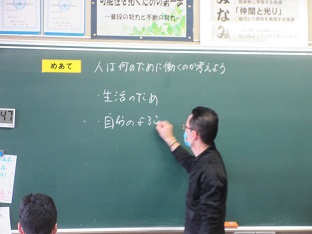 可能性を拓くための第一歩
～普段の努力と不断の努力～
みなみ
「仲間と光り」
めあて
人は何のために働くのか考えよう
・生活のため
・自分のよろ
47